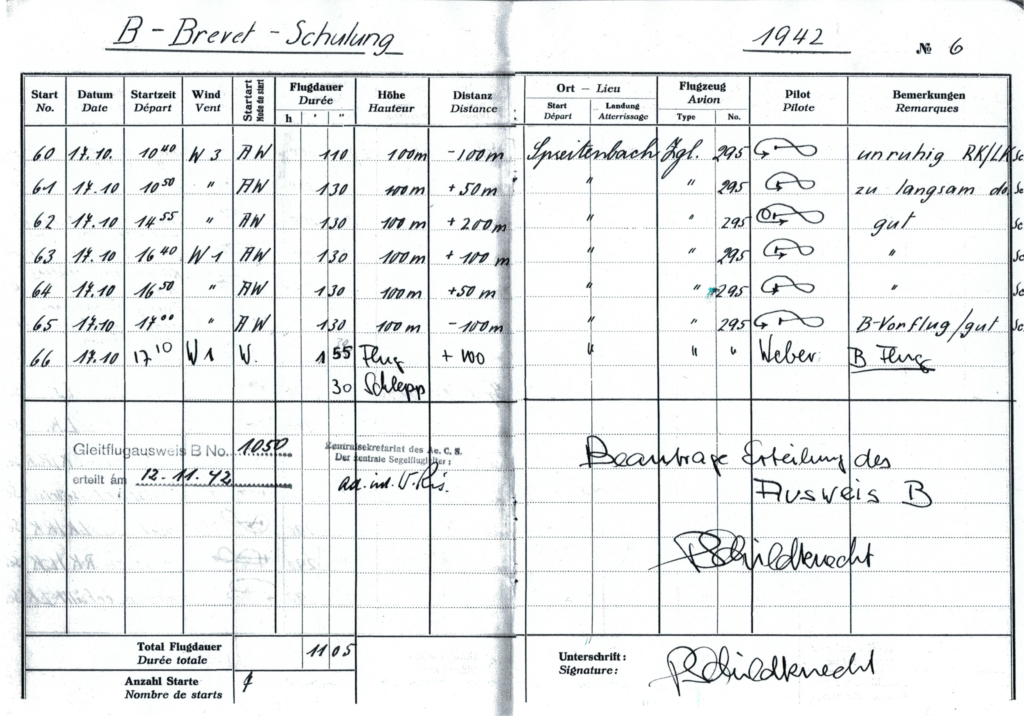 B - Brevet - Schulung 1942 № 6
Start No. Datum Date Startzeit Départ Wind Vent Startart Mode de start Flugdauer Durée h ' " Höhe Hauteur Distanz Distance Ort – Lieu Start Départ Landung Atterrissage Flugzeug Avion Type No. Pilot Pilote Bemerkungen Remarques
60 17.10. 10 40 W 3 AW 1 10 100 m - 100 m Spreitenbach Zgl. 295 unruhig RK/LK Sc
61 17.10 10 50 " AW 1 30 100 m + 50 m " " 295 zu langsam do. Sc
62 17.10 14 55 " AW 1 30 100 m + 200 m " " 295 gut Sc
63 17.10 16 40 W 1 AW 1 30 100 m + 100 m " " 295 " Sc
64 17.10 16 50 " AW 1 30 100 m + 50 m " " 295 " Sc
65 17.10 17 00 " AW 1 30 100 m - 100 m " " 295 B-Vorflug/gut Sc
66 17.10 17 10 W 1 W. 1 55 Flug + 100 " " " Weber B Flug
30 Schlepp
Gleitflugausweis B No. 1050
erteilt am 12.11.42
Zentralsekretariat des Ae. C. S.
Der zentrale Segelflugleiter:
Beantrage Erteilung des
Ausweis B
RSchildknecht
Total Flugdauer 11 05
Durée totale
Anzahl Starte 7
Nombre de starts
Unterschrift:
Signature: RSchildknecht